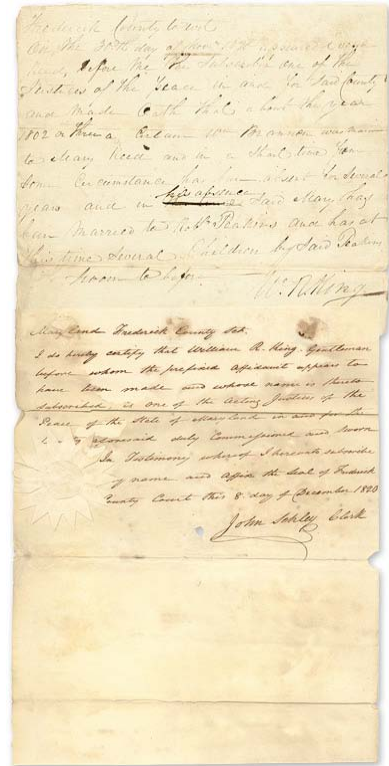 Frederick County to wit
On the 30th day of 1820 appeared
before me the Subscriber one of the
Justices of the Peace in and for Said County
and Made Oath that about the year
1802 or three a Certain Wm Brannon was married
to Mary Reed and in a Short time from
Some Circumstance has bin absent for Several
years and in his absence Said Mary has
bin Married to Robt Peakins and has at
this time Several Children by Said Peakins
Sworn to before
W. R. King
Maryland Frederick County Sct.
I do hereby certify that William R. King Gentleman
before whom the prefixed Affidavit appears to
have been made and whose name is thereto
subscribed, is one of the Acting Justices of the
Peace of the State of Maryland in and for the
aforesaid duly Commissioned and Sworn
In Testimony whereof I hereunto subscribe
my name and affix the Seal of Frederick
County Court this 8 day of December 1820
John Schley Clerk